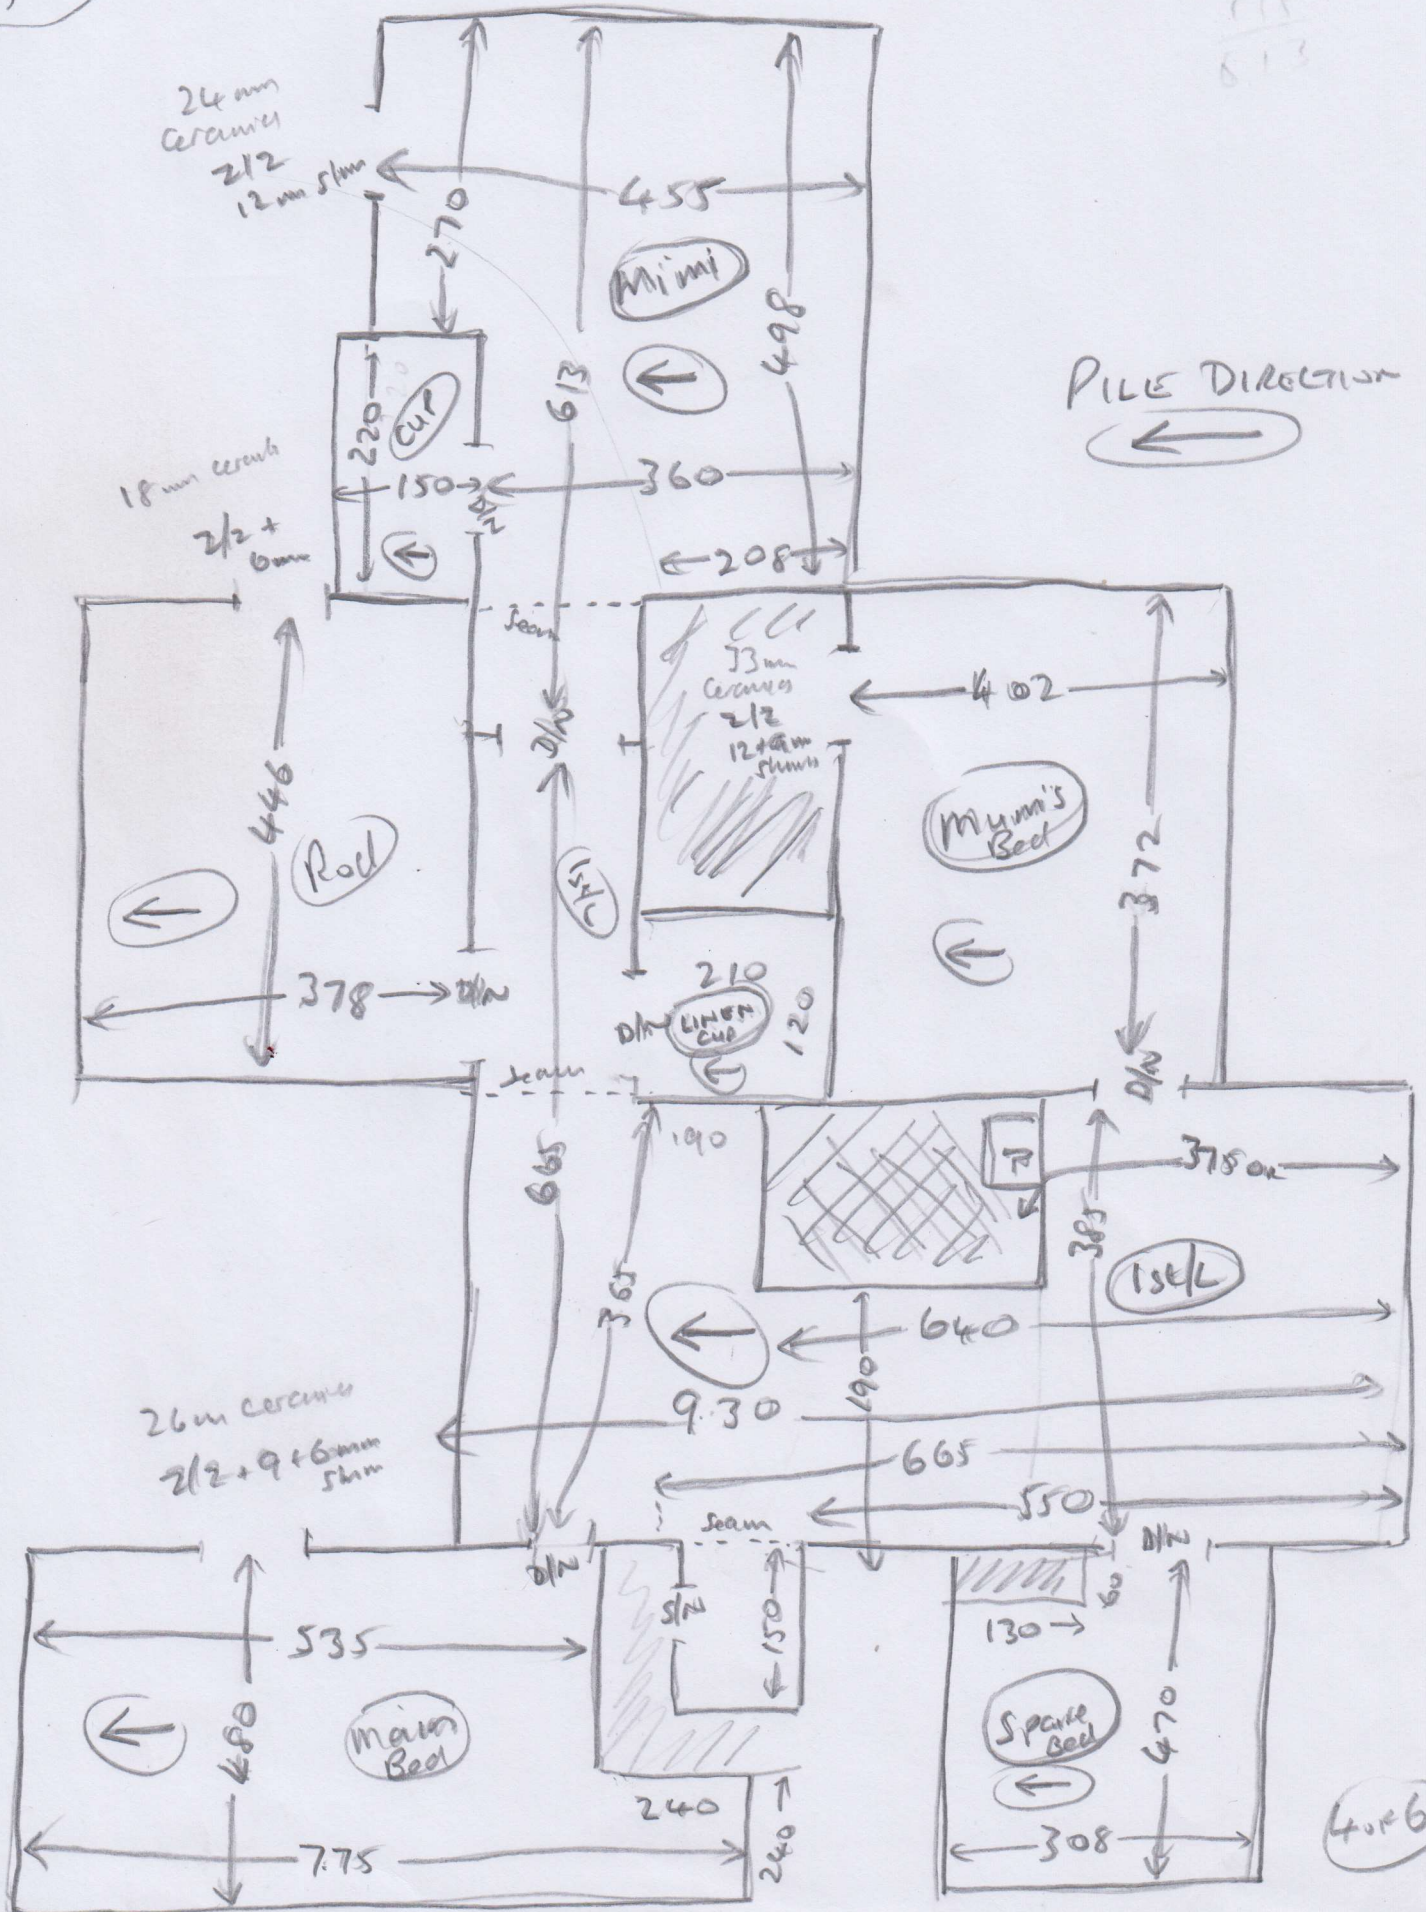 613
24mm
Ceramics
2/2
12mm s/mm
455
270
Mimi
498
613
PILE DIRECTION
CUP
220
18mm ceramic
2/2 +
6mm
150
360
D/N
208
Seam
33mm
Ceramics
2/2
402
D/N
446
Rod
1st/L
Mumi's
Bed
372
378
D/N
210
D/N
LINEN
CUP
120
D/N
Seam
190
375
385
665
365
1st/L
640
190
9.30
26m ceramics
2/2 + 9 + 6mm
665
550
Seam
D/N
D/N
S/N
150
60
130
535
480
Main
Bed
Spare
Bed
470
240
240
7.75
308
4 of 6